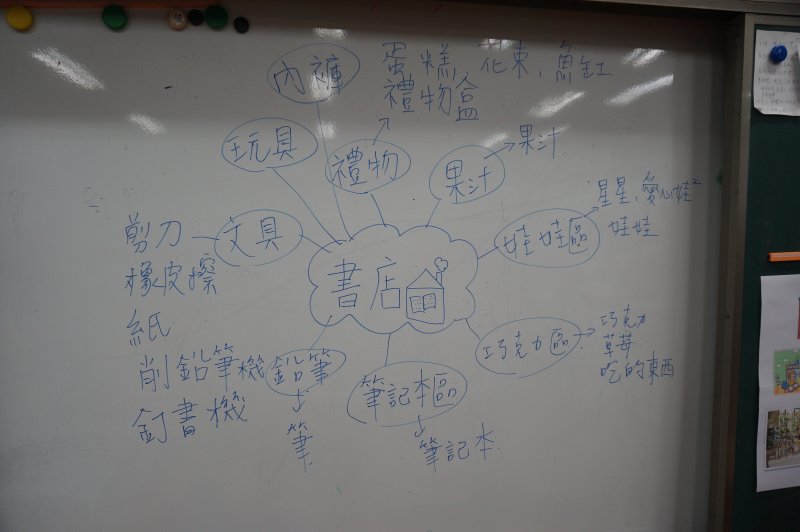 內褲
蛋糕,花束,魚缸
禮物盒
玩具
禮物
果汁
果汁
文具
剪刀
橡皮擦
紙
削鉛筆機
釘書機
書店
娃娃區
星星,愛心娃²
娃娃
巧克力區
巧克力
草莓
吃的東西
鉛筆
筆
筆記本區
筆記本